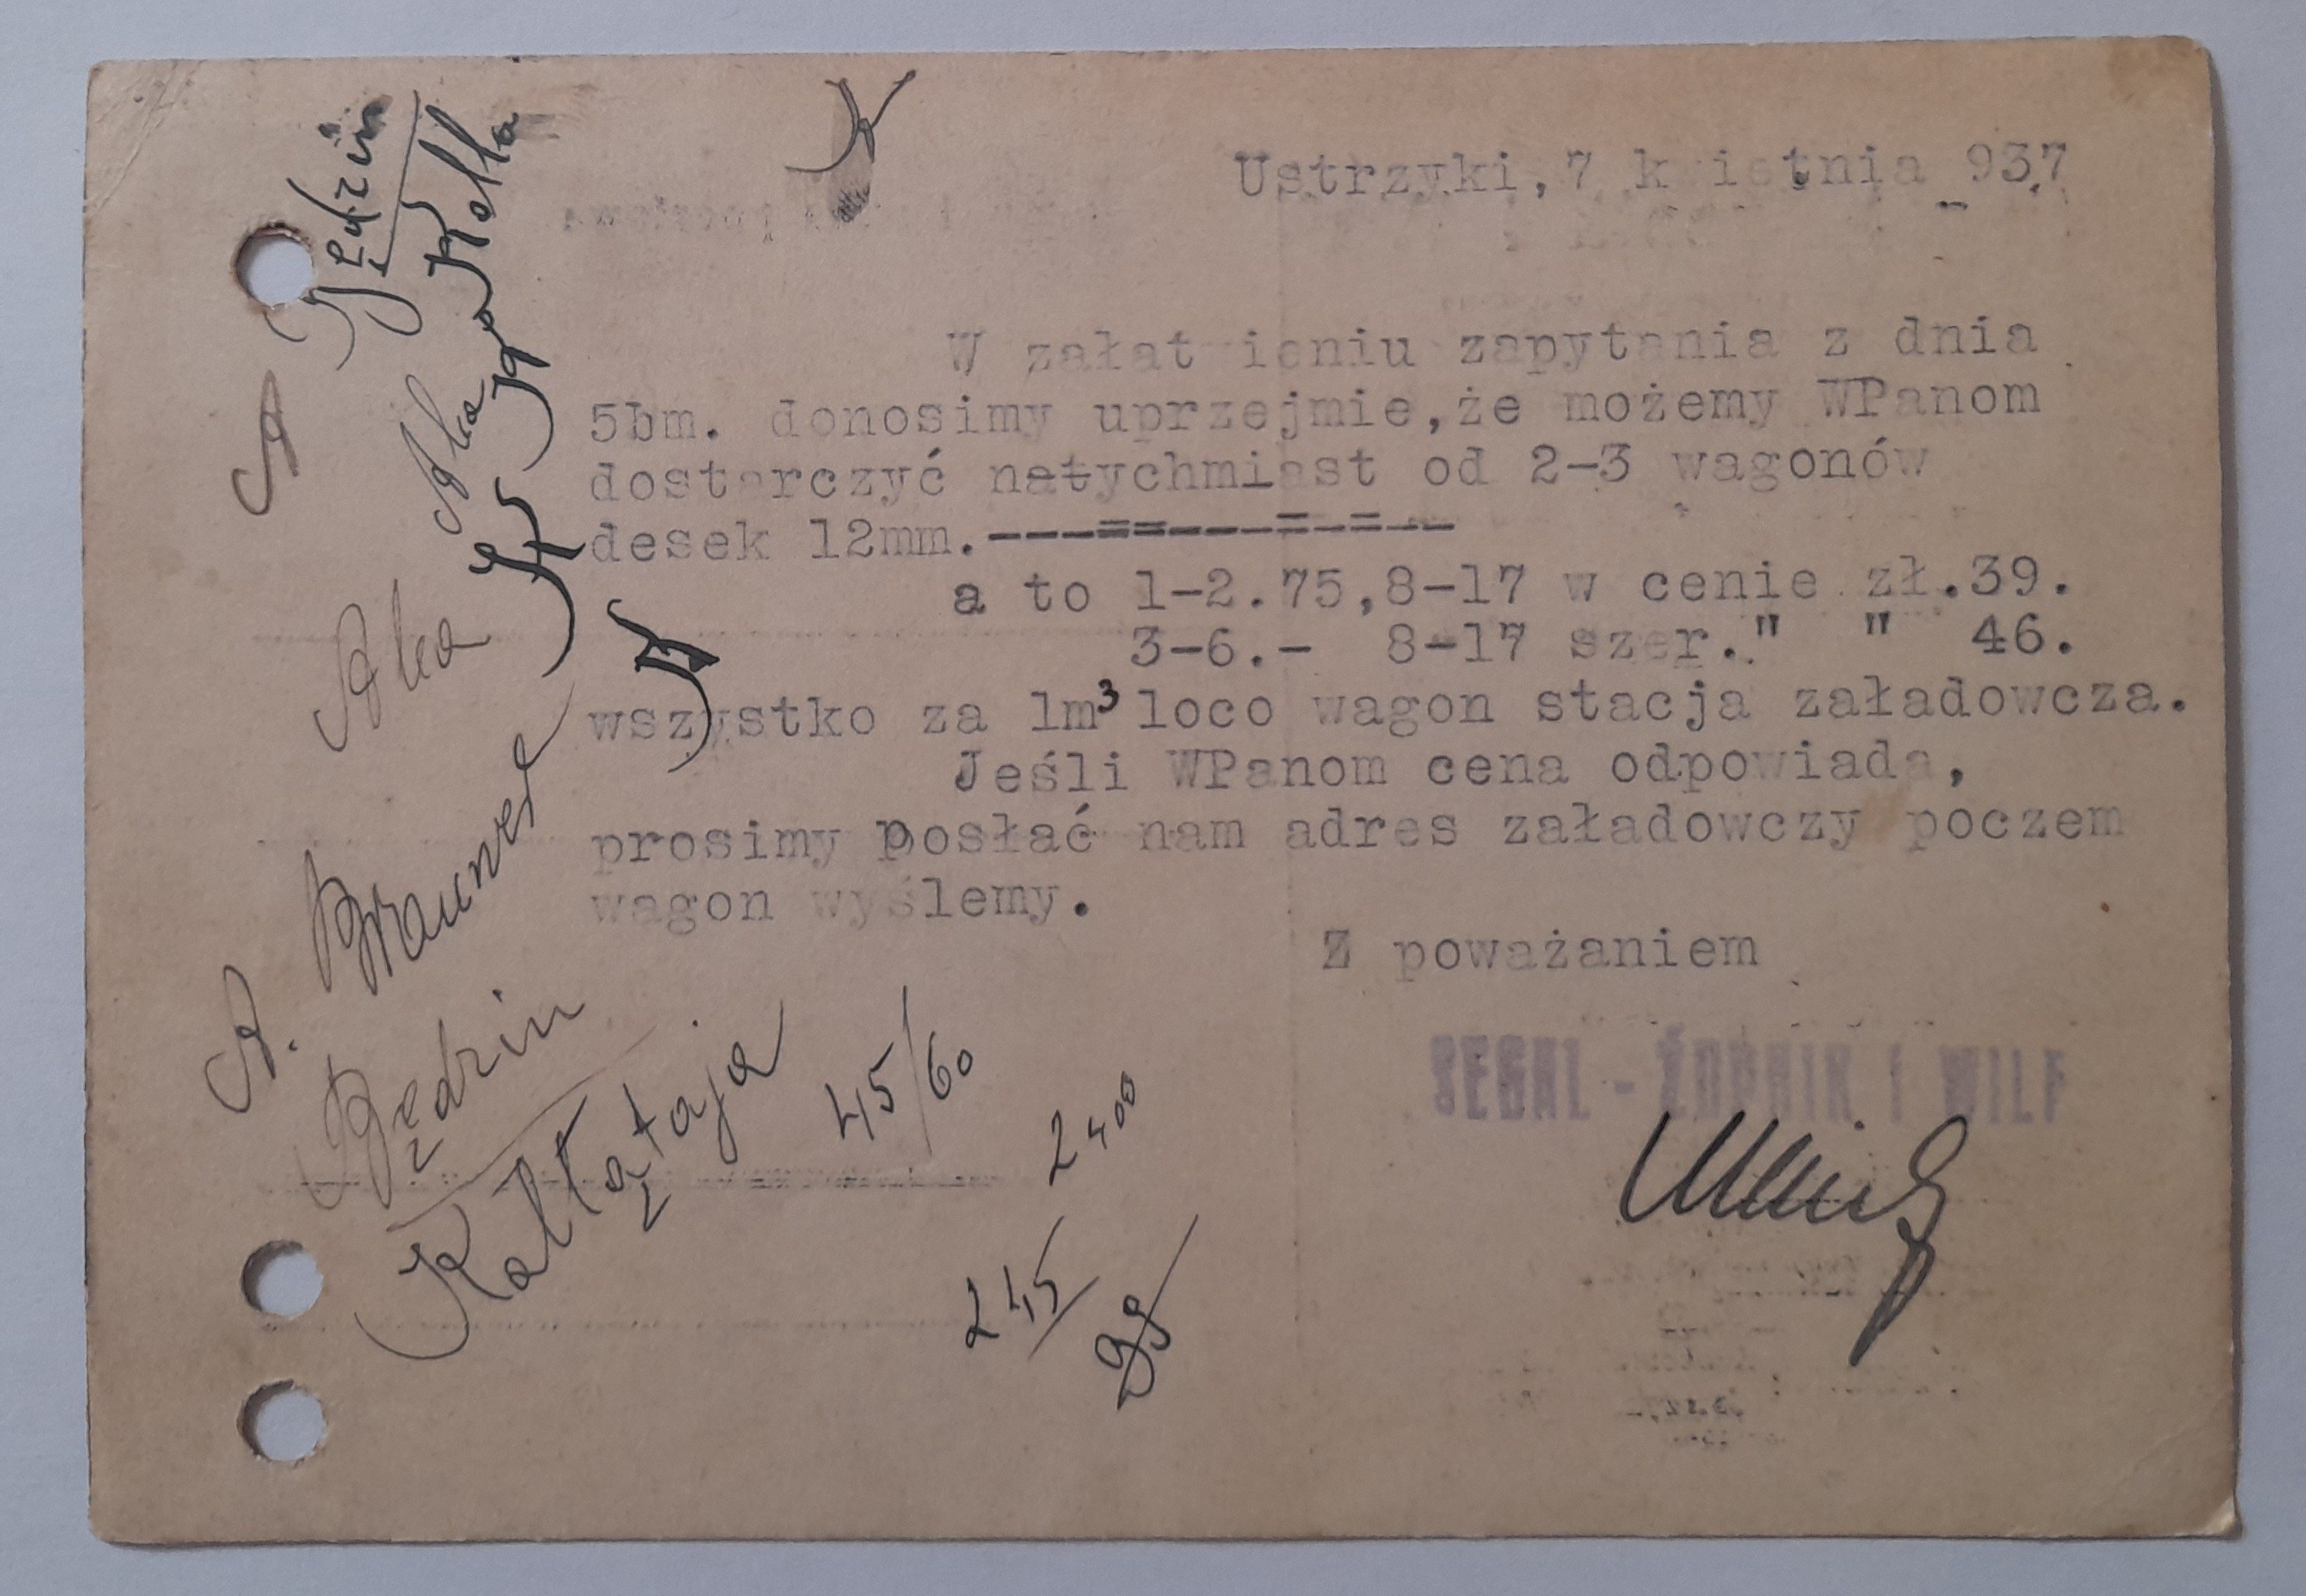 Ustrzyki, 7 kwietnia 937
W załatwieniu zapytania z dnia
5bm. donosimy uprzejmie, że możemy WPanom
dostarczyć natychmiast od 2-3 wagonów
desek 12mm.---==---=-=--
a to 1-2.75, 8-17 w cenie zł.39.
3-6.- 8-17 szer." " 46.
wszystko za 1m³ loco wagon stacja załadowcza.
Jeśli WPanom cena odpowiada,
prosimy posłać nam adres załadowczy poczem
wagon wyślemy.
Z poważaniem
SEGAL - ŻUPNIK I WILF
A. Brauner
Będzin
Kołłątaja 45/60
2400
245